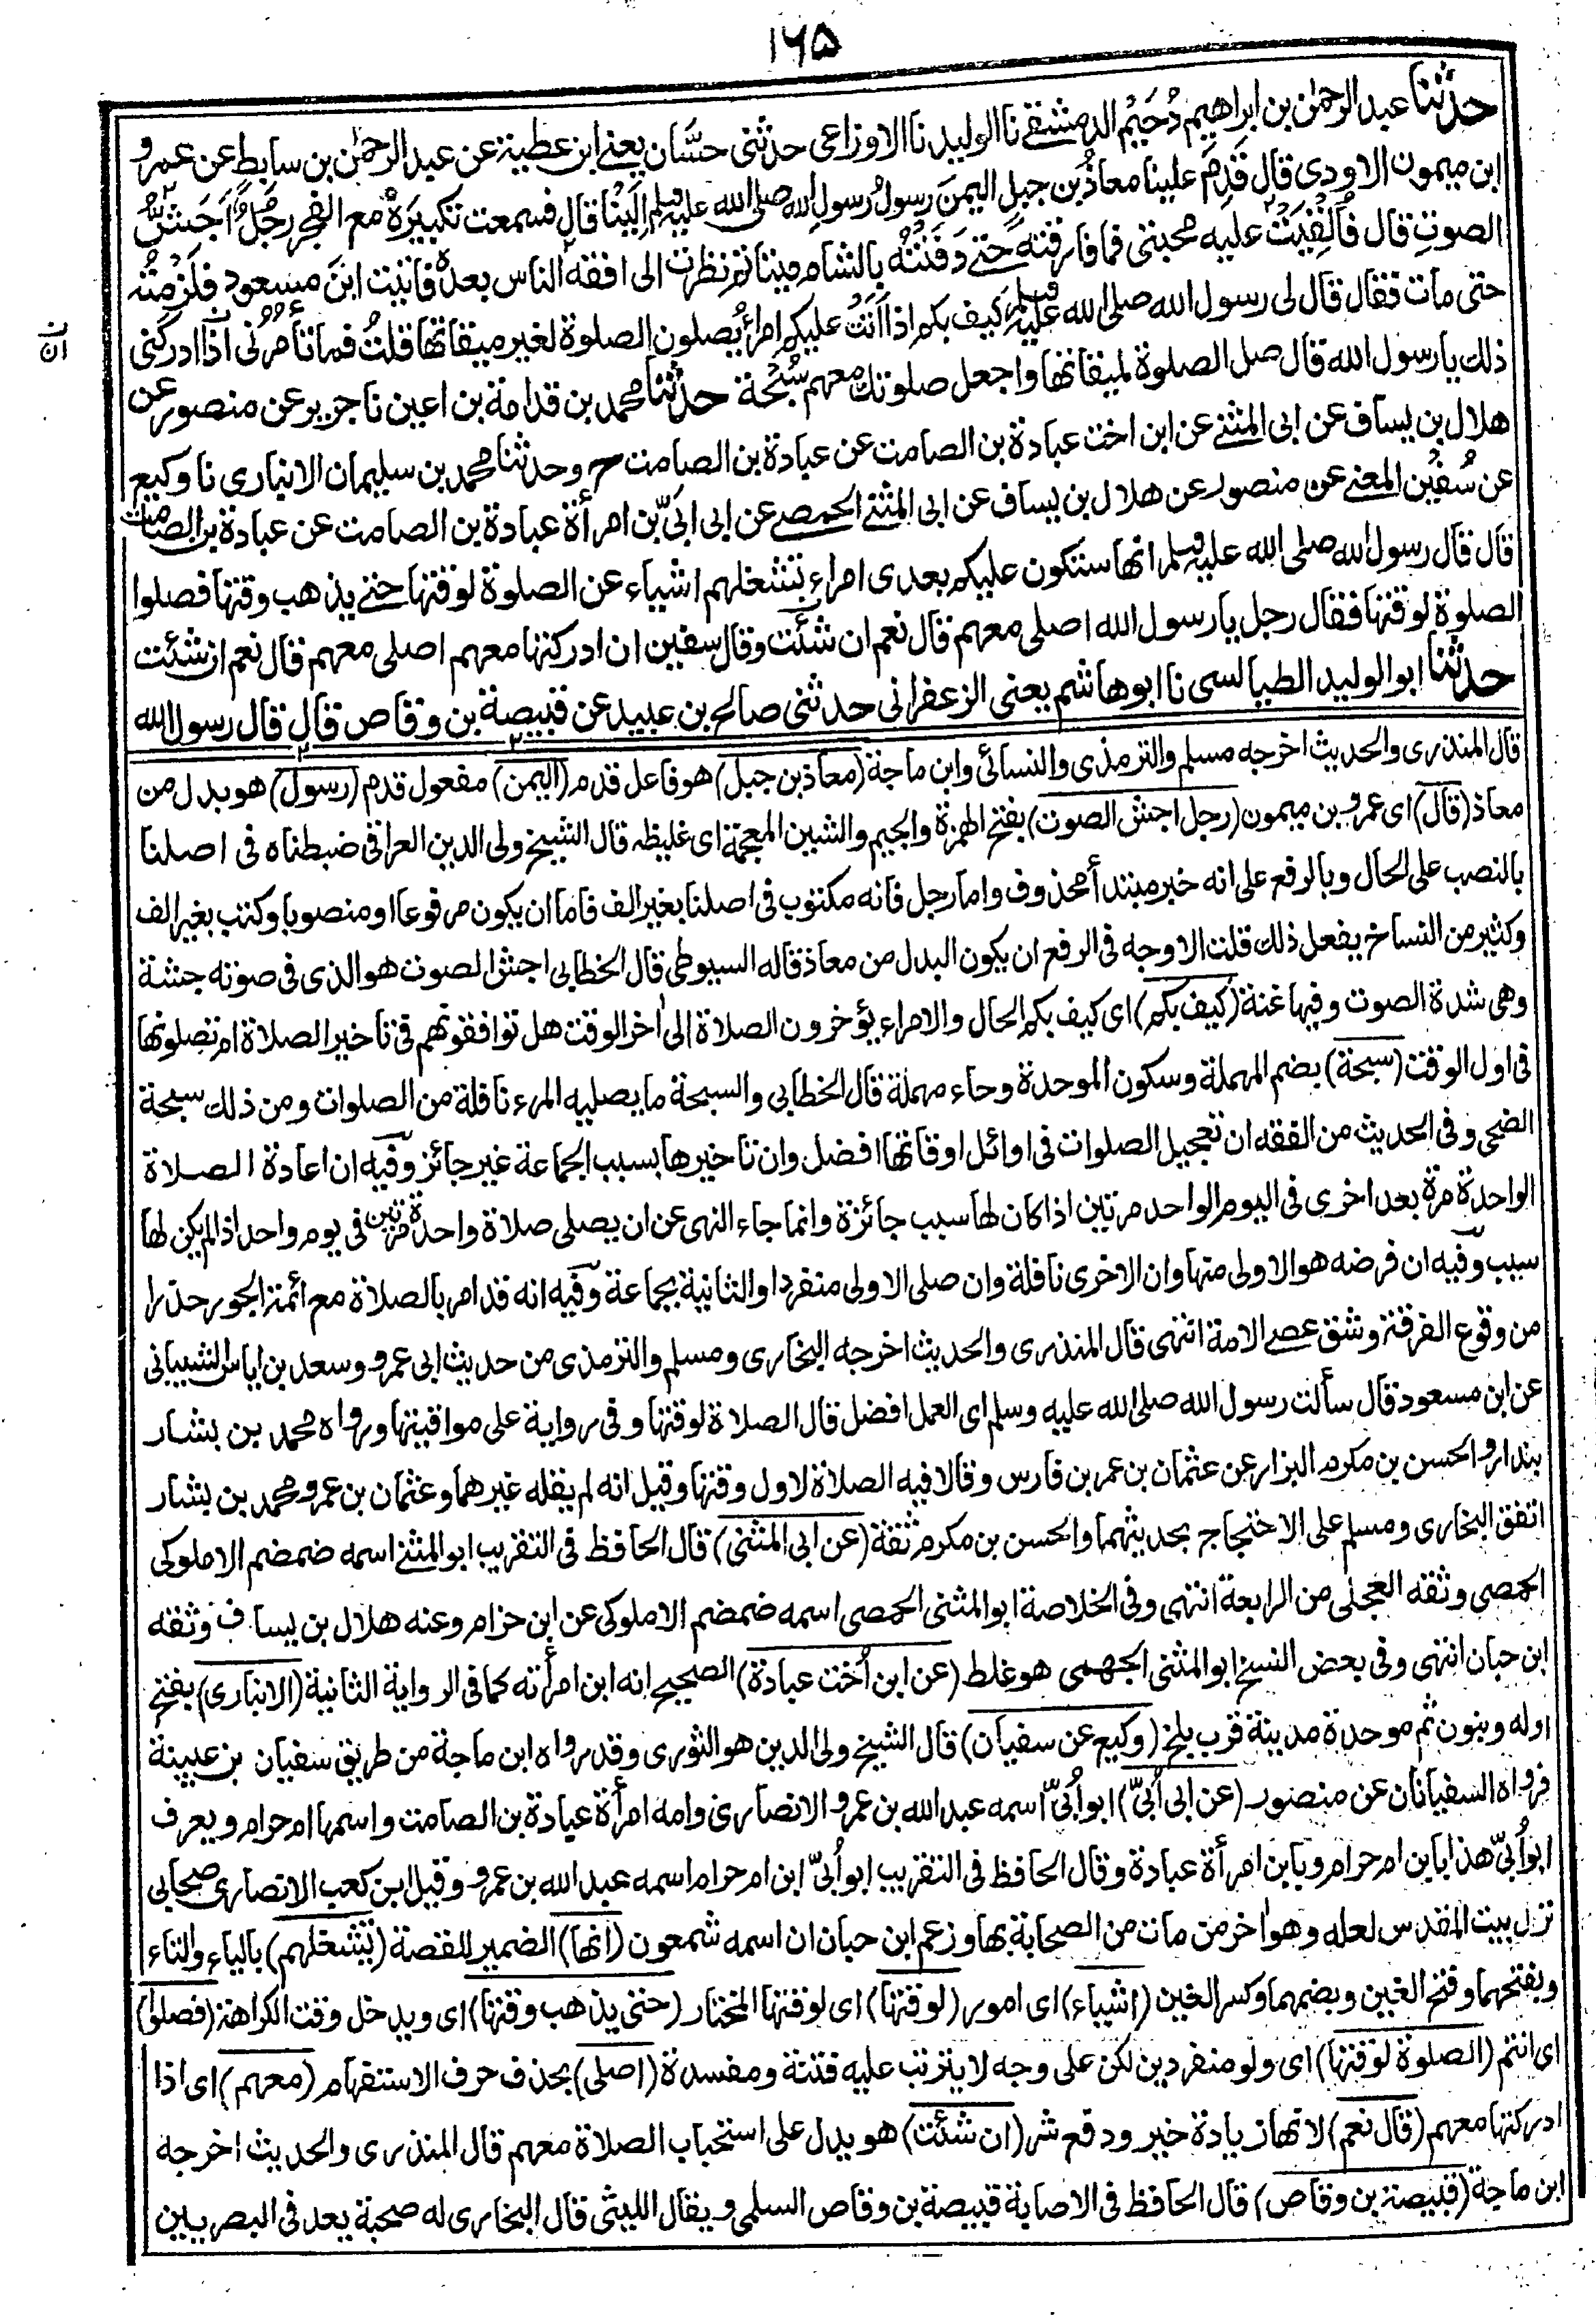 ١٦٥
حدثنا عبد الرحمٰن بن ابراهيم دُحَيْم الدمشقے نا الوليد نا الاوزاعی حدثنی حسَّان يعنے ابن عطية عن عبد الرحمٰن بن سابط عن عمرو
ابن ميمون الاودی قال قَدِمَ علينا معاذُ بن جبلٍ اليمنَ رسولُ رسولِ الله صلی الله عليه وسلم اِلَيْنا قال فسمعت تكبيرَهٗ مع الفجر رجلٌ اَجَشُّ
الصوتِ قال فَاُلْقِيَتْ عليه محبتی فما فارقته حتے دَفَنْتُهٗ بالشام ميتا ثم نظرت الی افقه الناس بعدهٗ فاتيت ابنَ مسعود فلَزِمْتُه
حتی مات فقال قال لی رسول الله صلی الله عليه وسلم كيف بكم اذا اَتَتْ عليكم امراءُ يُصلون الصلوة لغير ميقاتها قلتُ فما تأمُرُنی اذا ادركنی
ان
ذلك يا رسول الله قال صل الصلوة لميقاتها واجعل صلوتك معهم سُبْحة حدثنا محمد بن قدامة بن اعين نا جرير عن منصور عن
هلال بن يساف عن ابی المثنے عن ابن اخت عبادة بن الصامت عن عبادة بن الصامت ح وحدثنا محمد بن سليمان الانباری نا وكيع
عن سُفيٰن المعنے عن منصور عن هلال بن يساف عن ابی المثنے الحمصے عن ابی اُبَیّ بن امرأة عبادة بن الصامت عن عبادة بن الصامت
قال قال رسول الله صلی الله عليه وسلم انها ستكون عليكم بعدی امراء تشغلهم اشياء عن الصلوة لوقتها حتے يذهب وقتها فصلوا
الصلوة لوقتها فقال رجل يا رسول الله اصلی معهم قال نعم ان شئت وقال سفين ان ادركتها معهم اصلی معهم قال نعم ان شئت
حدثنا ابو الوليد الطيالسی نا ابو هاشم يعنی الزعفرانی حدثنی صالح بن عبيد عن قبيصة بن وقاص قال قال رسول الله
قال المنذری والحديث اخرجه مسلم والترمذی والنسائی وابن ماجة (معاذ بن جبل) هو فاعل قدم (اليمن) مفعول قدم (رسول) هو بدل من
معاذ (قال) ای عمرو بن ميمون (رجل اجش الصوت) بفتح الهمزة والجيم والشين المعجمة ای غليظه قال الشيخ ولی الدين العراقی ضبطناه فی اصلنا
بالنصب علی الحال وبالرفع علی انه خبر مبتدأ محذوف واما رجل فانه مكتوب فی اصلنا بغير الف فاما ان يكون مرفوعا او منصوبا وكتب بغير الف
وكثير من النساخ يفعل ذلك قلت الاوجه فی الرفع ان يكون البدل من معاذ قاله السيوطی قال الخطابی اجش الصوت هو الذی فی صوته جشة
وهی شدة الصوت وفيها غنة (كيف بكم) ای كيف بكم الحال والامراء يؤخرون الصلاة الیٰ اٰخر الوقت هل توافقوتهم فی تاخير الصلاة ام تصلونها
فی اول الوقت (سبحة) بضم المهملة وسكون الموحدة وحاء مهملة قال الخطابی والسبحة ما يصليه المرء نافلة من الصلوات ومن ذلك سبحة
الضحی وفی الحديث من الفقه ان تعجيل الصلوات فی اوائل اوقاتها افضل وان تاخيرها بسبب الجماعة غير جائز وفيه ان اعادة الصلاة
الواحدة مرة بعد اخری فی اليوم الواحد مرتين اذا كان لها سبب جائزة وانما جاء النهی عن ان يصلی صلاة واحدة مرتين فی يوم واحد اذا لم يكن لها
سبب وفيه ان فرضه هو الاولی منها وان الاخری نافلة وان صلی الاولی منفردا والثانية بجماعة وفيه انه قد امر بالصلاة مع ائمة الجور حذرا
من وقوع الفرقة وشق عصے الامة انتهی قال المنذری والحديث اخرجه البخاری ومسلم والترمذی من حديث ابی عمرو وسعد بن اياس الشيبانی
عن ابن مسعود قال سألت رسول الله صلی الله عليه وسلم ای العمل افضل قال الصلاة لوقتها وفی رواية علی مواقيتها ورواه محمد بن بشار
بندار والحسن بن مكرم البزار عن عثمان بن عمر بن فارس وقالا فيه الصلاة لاول وقتها وقيل انه لم يقله غيرهما وعثمان بن عمر ومحمد بن بشار
اتفق البخاری ومسلم علی الاحتجاج بحديثهما والحسن بن مكرم ثقة (عن ابی المثنی) قال الحافظ فی التقريب ابو المثنے اسمه ضمضم الاملوكی
الحمصی وثقه العجلی من الرابعة انتهی وفی الخلاصة ابو المثنی الحمصی اسمه ضمضم الاملوكی عن ابن حزام وعنه هلال بن يساف وثقه
ابن حبان انتهی وفی بعض النسخ ابو المثنی الجهمی هو غلط (عن ابن اُخت عبادة) الصحيح انه ابن امرأته كما فی الرواية الثانية (الانباری) بفتح
اوله وبنون ثم موحدة مدينة قرب بلخ (وكيع عن سفيان) قال الشيخ ولی الدين هو الثوری وقد رواه ابن ماجة من طريق سفيان بن عيينة
فرواه السفيانان عن منصور (عن ابی اُبَیّ) ابو اُبیّ اسمه عبد الله بن عمرو الانصاری وامه امرأة عبادة بن الصامت واسمها ام حرام ويعرف
ابو اُبیّ هذا بابن ام حرام وبابن امرأة عبادة وقال الحافظ فی التقريب ابو اُبیّ ابن ام حرام اسمه عبد الله بن عمرو وقيل ابن كعب الانصاری صحابی
نزل بيت المقدس لعله وهو اٰخر من مات من الصحابة بها وزعم ابن حبان ان اسمه شمعون (انها) الضمير للقصة (تشغلهم) بالياء والتاء
وبفتحهما وفتح الغين وبضمهما وكسر الغين (اشياء) ای امور (لوقتها) ای لوقتها المختار (حتی يذهب وقتها) ای ويدخل وقت الكراهة (فصلوا)
ای انتم (الصلوة لوقتها) ای ولو منفردين لكن علی وجه لا يترتب عليه فتنة ومفسدة (اصلی) بحذف حرف الاستفهام (معهم) ای اذا
ادركتها معهم (قال نعم) لانها زيادة خير ودفع شر (ان شئت) هو يدل علی استحباب الصلاة معهم قال المنذری والحديث اخرجه
ابن ماجة (قبيصة بن وقاص) قال الحافظ فی الاصابة قبيصة بن وقاص السلمی ويقال الليثی قال البخاری له صحبة يعد فی البصريين